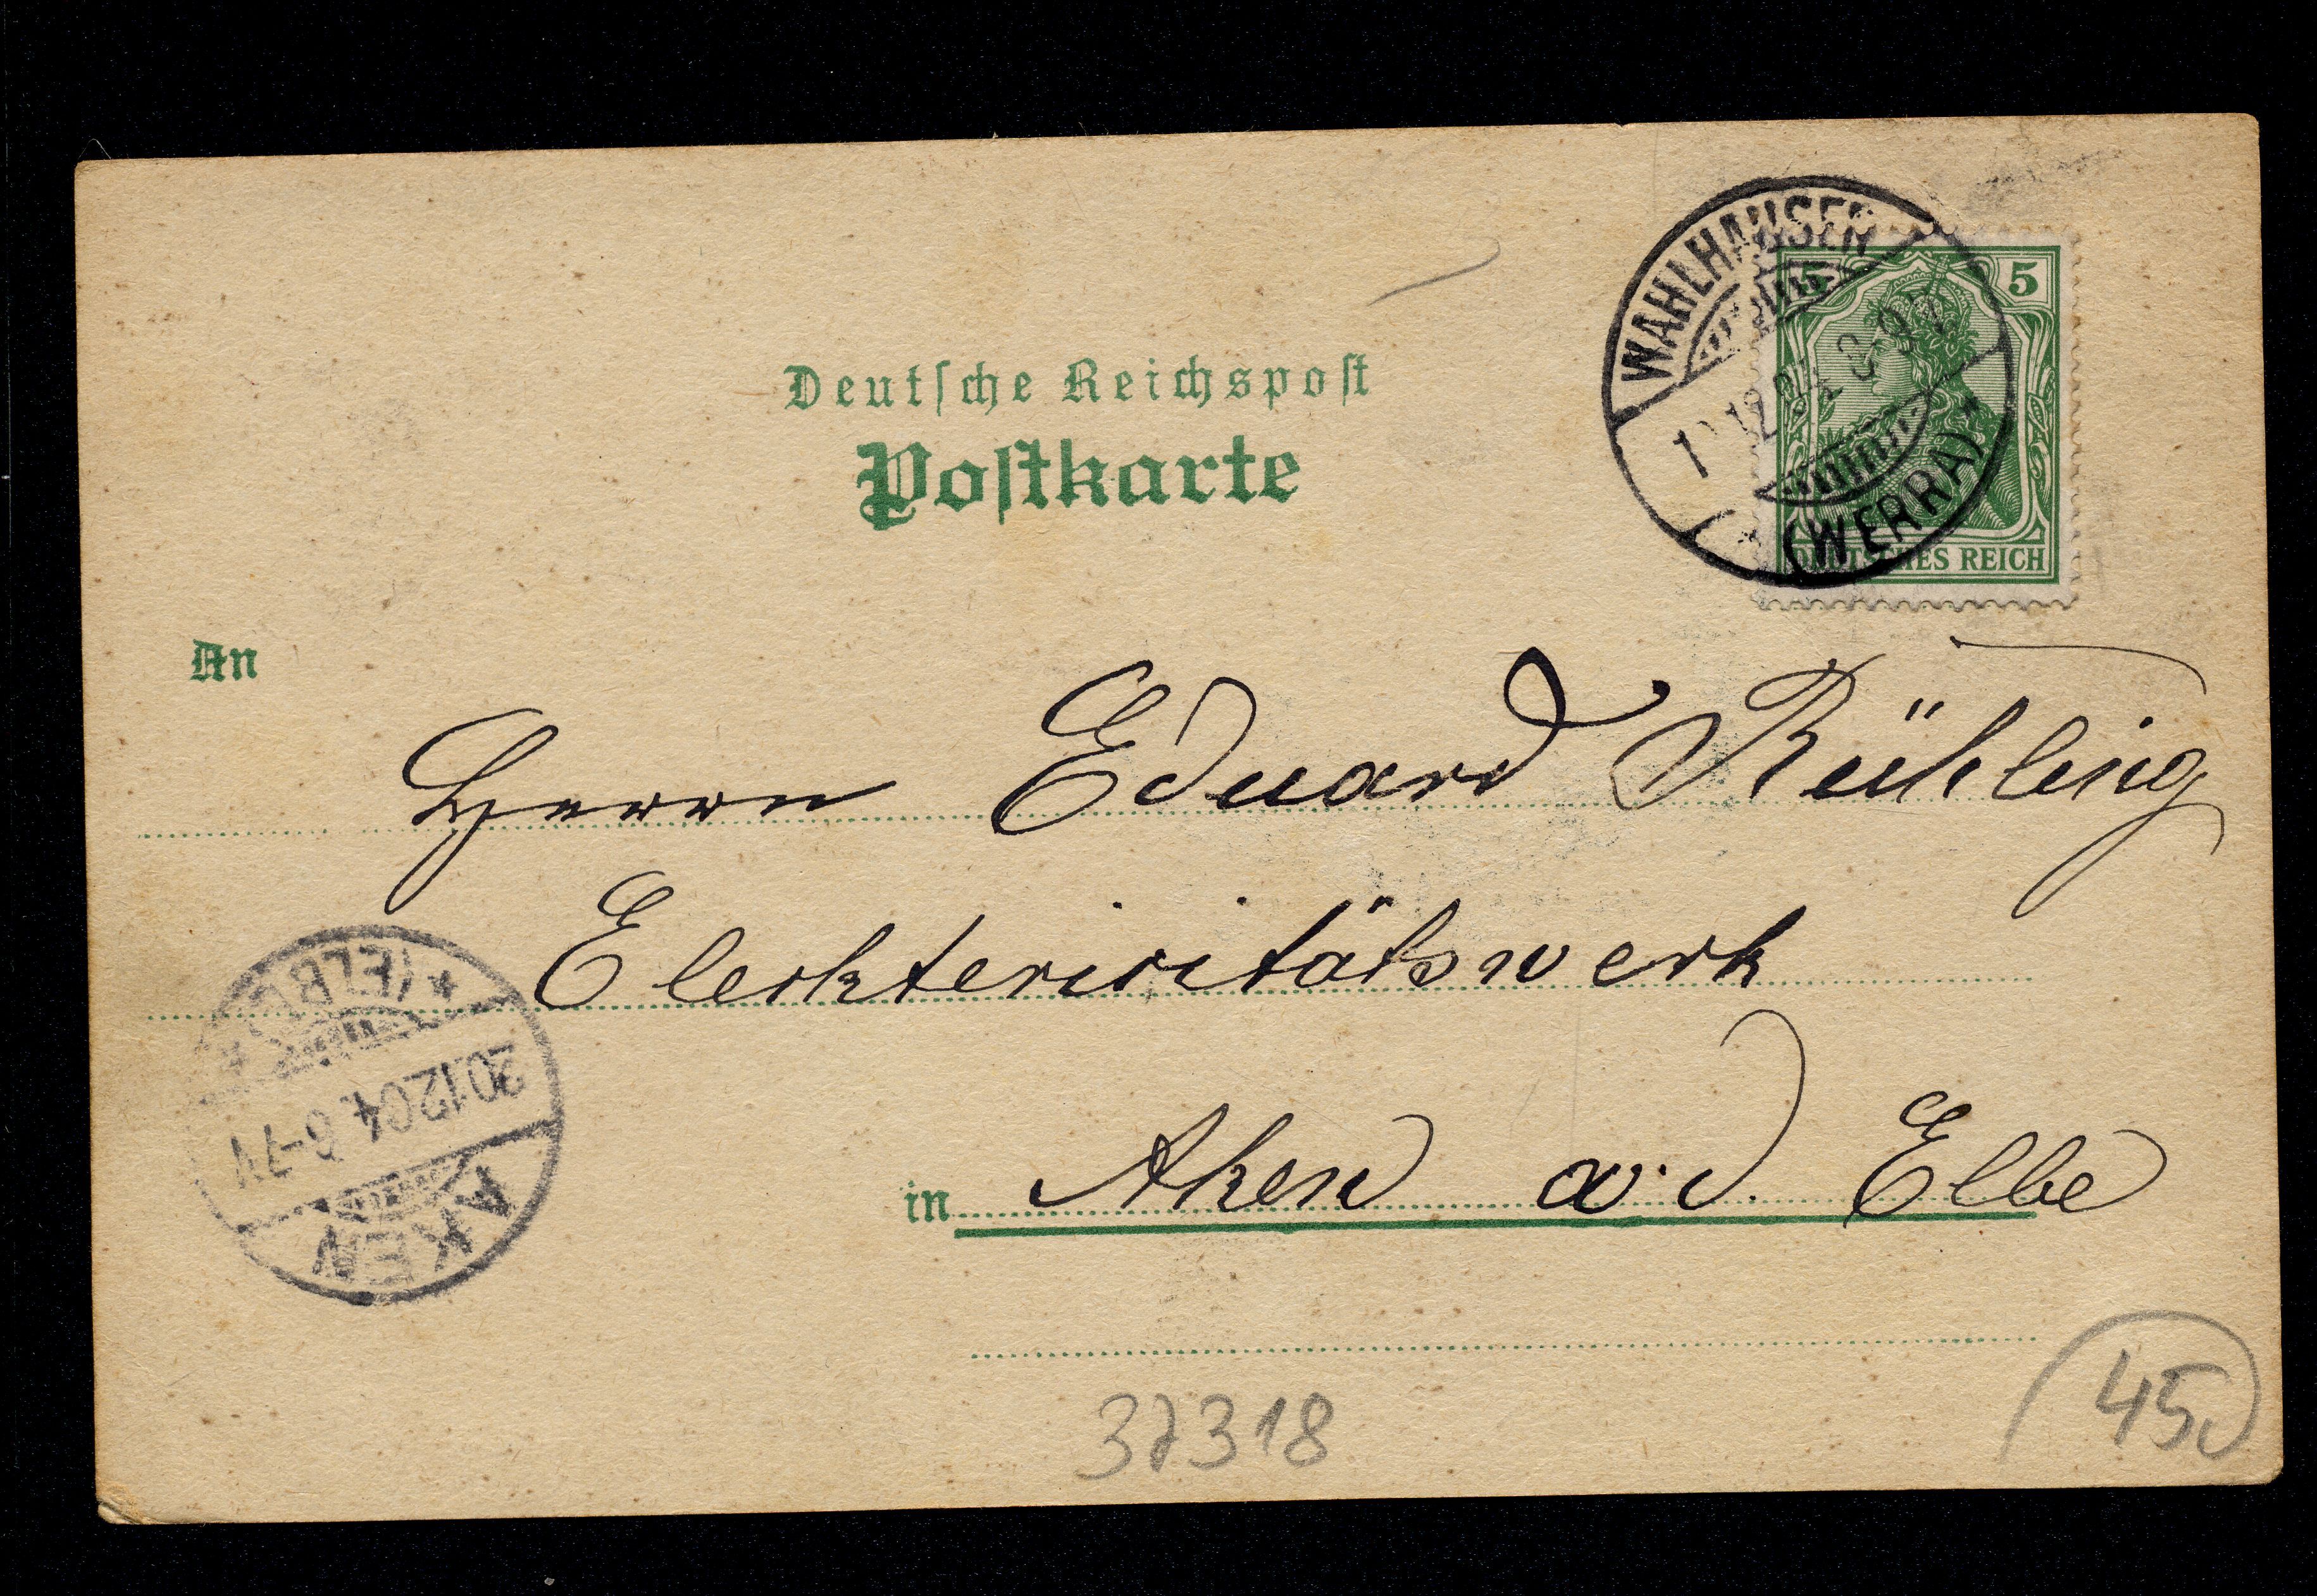 Deutsche Reichspost
Postkarte
WAHLHAUSEN
(WERRA)
5 5
DEUTSCHES REICH
An
Herrn Eduard Rühling
Eleckterisitätswerk
in Aken a. d. Elbe
AKEN
20.12.04. 6-7N
* (ELBE)
37318
45